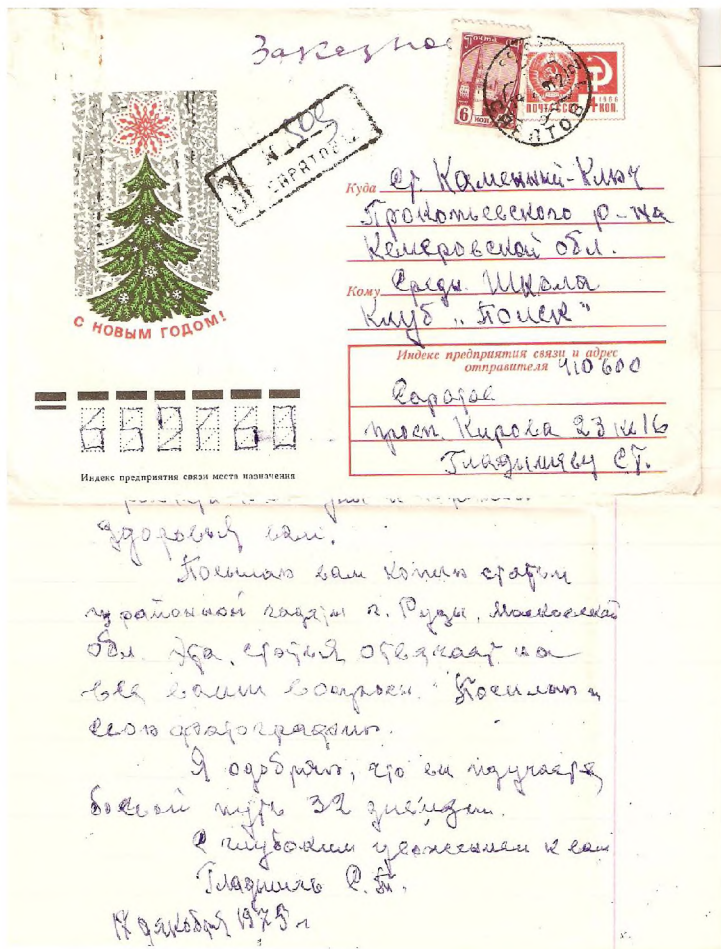 Заказное
Почта
6 коп
ПОЧТА СССР
1966
КОП.
САРАТОВ
З
N 509
САРАТОВ
Куда ст. Каменный-Ключ
Прокопьевского р-на
Кемеровской обл.
Кому Средн. Школа
Клуб „Поиск"
С НОВЫМ ГОДОМ!
Индекс предприятия связи и адрес
отправителя 410600
Саратов
просп. Кирова 23 кв 16
Гладышеву С.Т.
652763
Индекс предприятия связи места назначения
здоровья вам.
Посылаю вам копию статьи
из районной газеты г. Рузы, Московской
обл. Эта статья отвечает на
все ваши вопросы. Посылаю и
свою фотографию.
Я одобряю, что вы изучаете
боевой путь 32 дивизии.
С глубоким уважением к вам
Гладышев С.Т.
17 декабря 1975 г